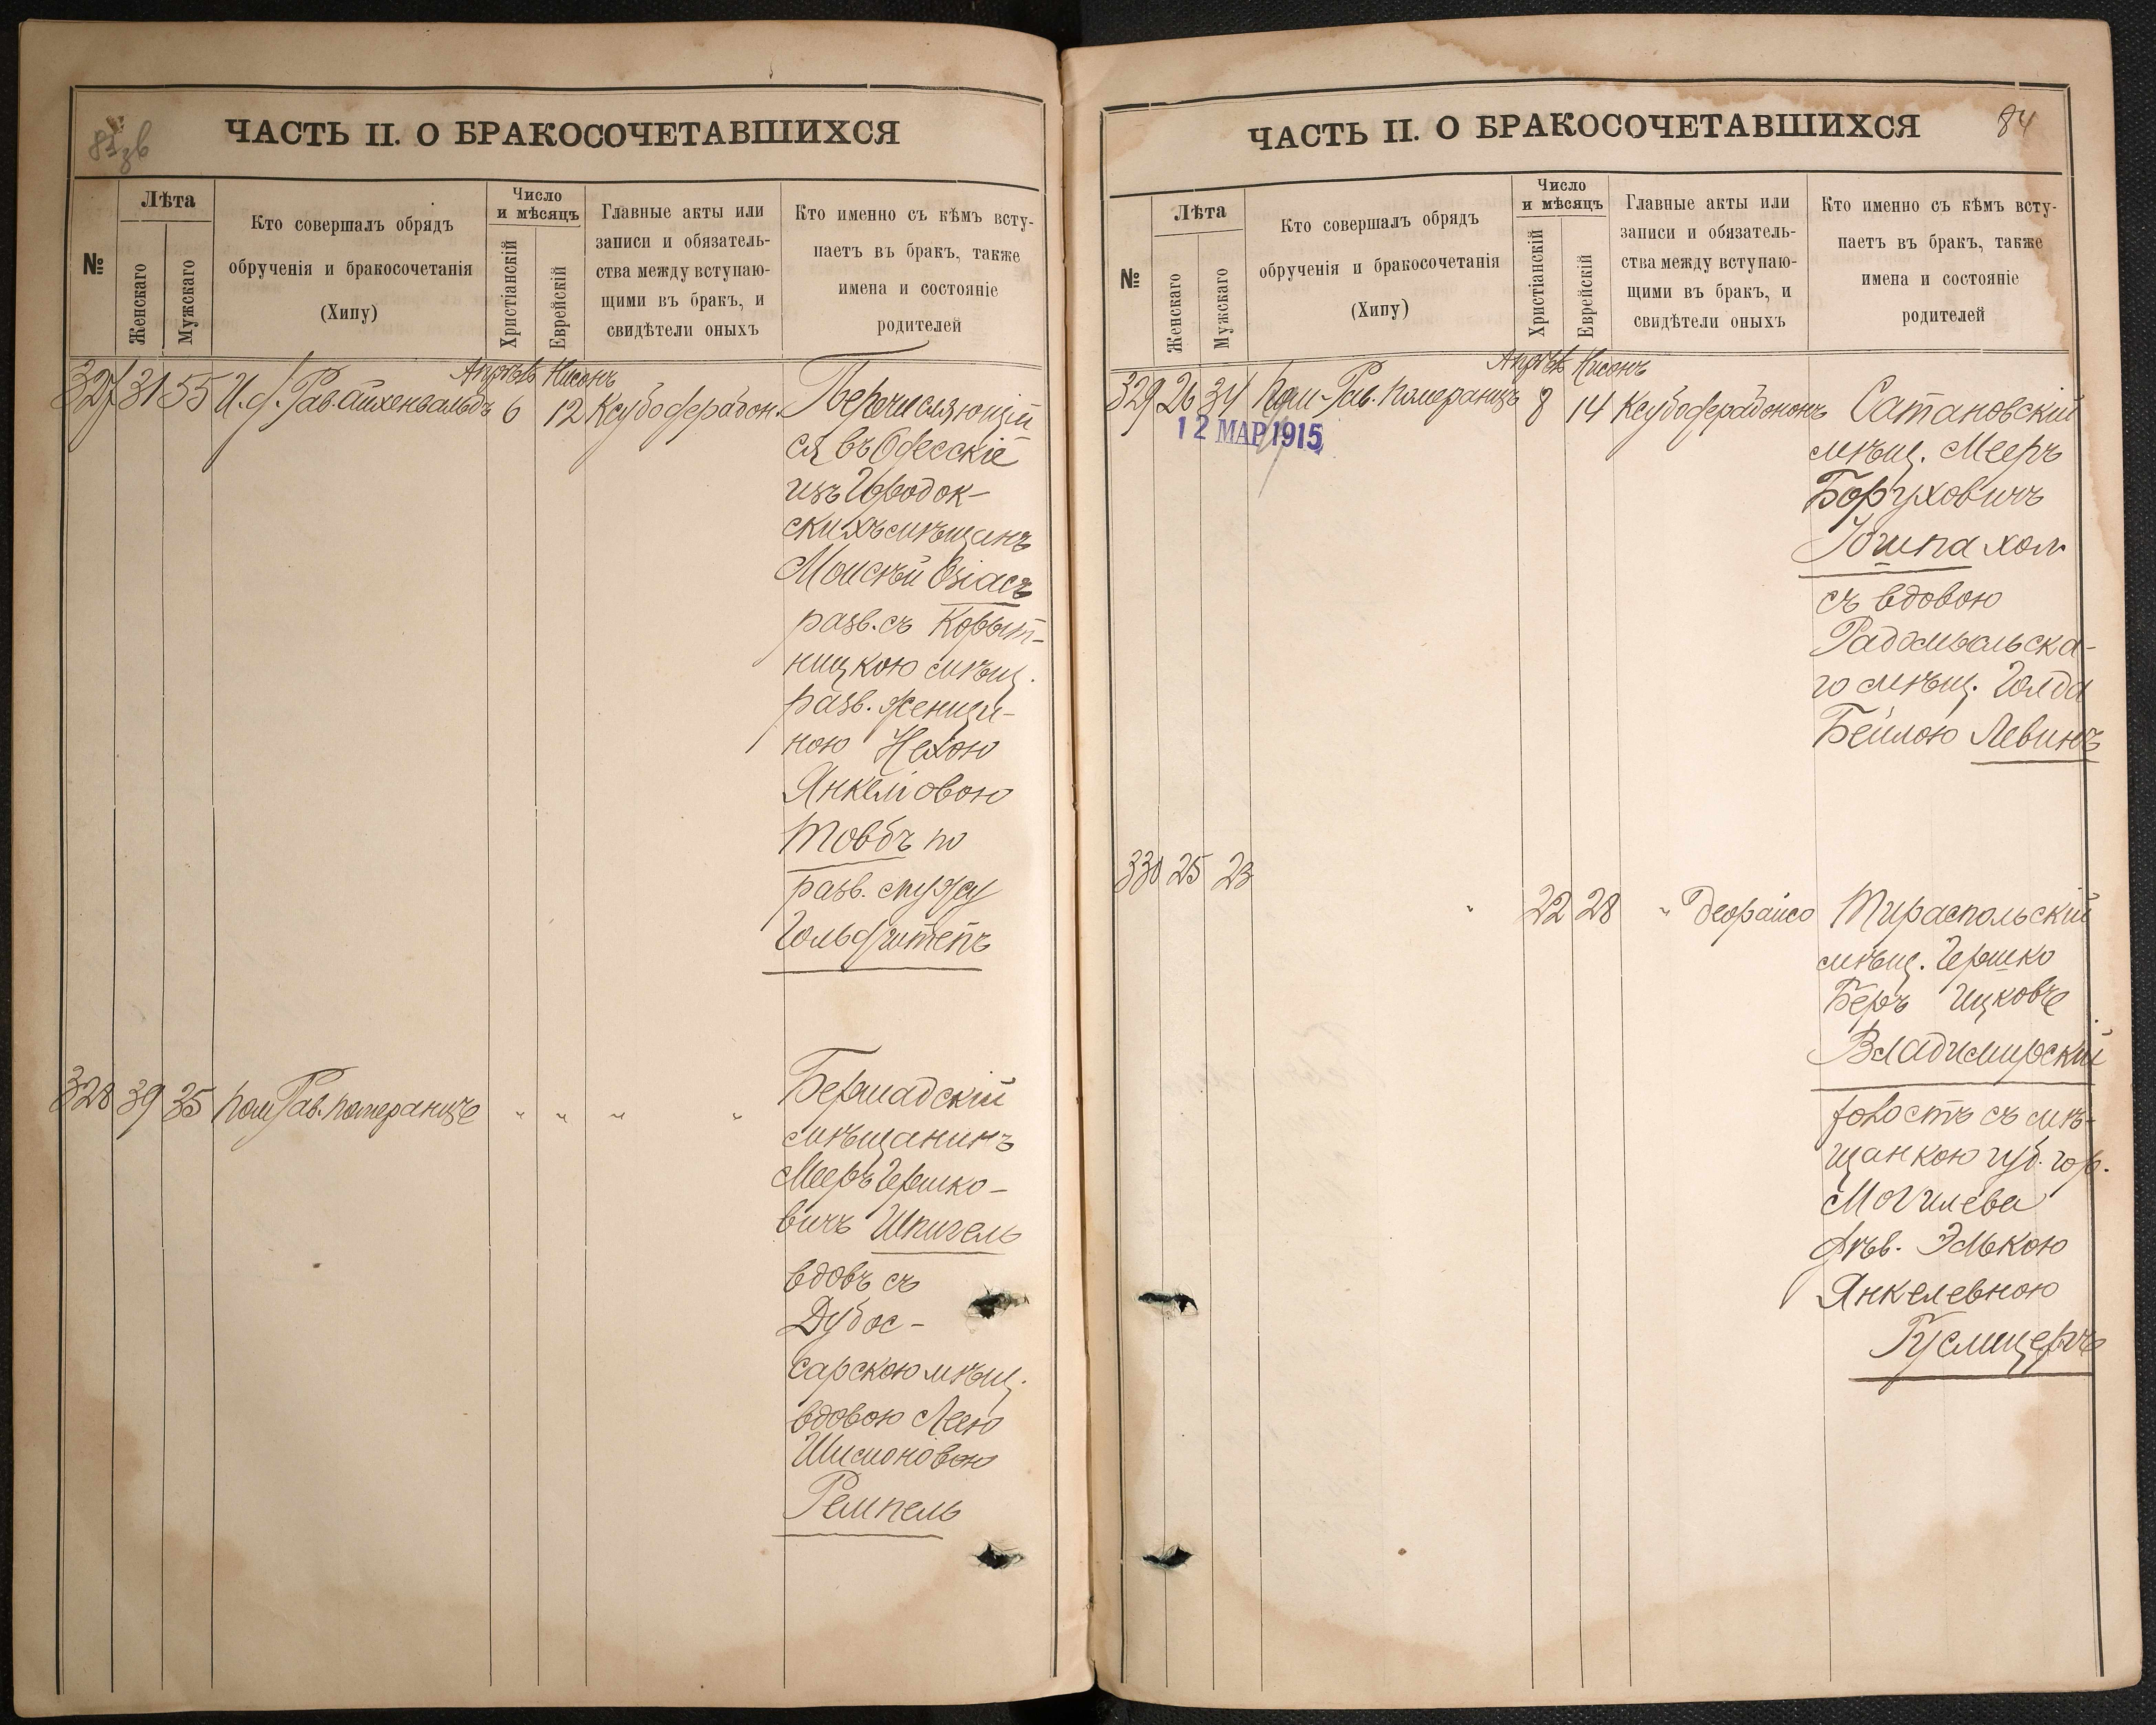 83 зв
ЧАСТЬ II. О БРАКОСОЧЕТАВШИХСЯ
№
Лѣта
Женскаго
Мужскаго
Кто совершалъ обрядъ
обрученія и бракосочетанія
(Хипу)
Число
и мѣсяцъ
Христіанскій
Еврейскій
Главные акты или
записи и обязатель-
ства между вступаю-
щими въ бракъ, и
свидѣтели оныхъ
Кто именно съ кѣмъ всту-
паетъ въ бракъ, также
имена и состояніе
родителей
Апрѣль Нисонъ
327 31 55 И. д. Рав. Айхенвальдъ 6 12 Ксубо дерабон. Перечисляющій
ся въ Одесскіе
изъ
скихъ мѣщанъ
Моисѣй Озіасъ
разв. съ Корыт-
ницкою мѣщ.
разв. женщи-
ною Нехою
Янкелiовою
Товбъ по
разв. мужу
Гольдштепъ
328 39 35 пом. Рав. Померанцъ " " " " Бершадскій
мѣщанинъ
Мееръ Гершко-
вичъ Шпигель
вдовъ съ
Дубос-
сарскою мѣщ.
вдовою Леею
Шимоновою
Ремпель
84
ЧАСТЬ II. О БРАКОСОЧЕТАВШИХСЯ
№
Лѣта
Женскаго
Мужскаго
Кто совершалъ обрядъ
обрученія и бракосочетанія
(Хипу)
Число
и мѣсяцъ
Христіанскій
Еврейскій
Главные акты или
записи и обязатель-
ства между вступаю-
щими въ бракъ, и
свидѣтели оныхъ
Кто именно съ кѣмъ всту-
паетъ въ бракъ, также
имена и состояніе
родителей
Апрѣль Нисонъ
329 26 34 Пом. Рав. Померанцъ 8 14 Ксубо дерабононъ Сатановскій
12 МАР 1915
мѣщ. Мееръ
Боруховичъ
хол.
съ вдовою
Радомысльска-
го мѣщ. Голда
Бейлою Левинъ
330 25 23 " 22 28 " деорайсо Тираспольскій
мѣщ. Гершко
Беръ Ицковъ
Владимирскій
холостъ съ мѣ-
щанкою губ. гор.
Могилева
дѣв. Элькою
Янкелевною